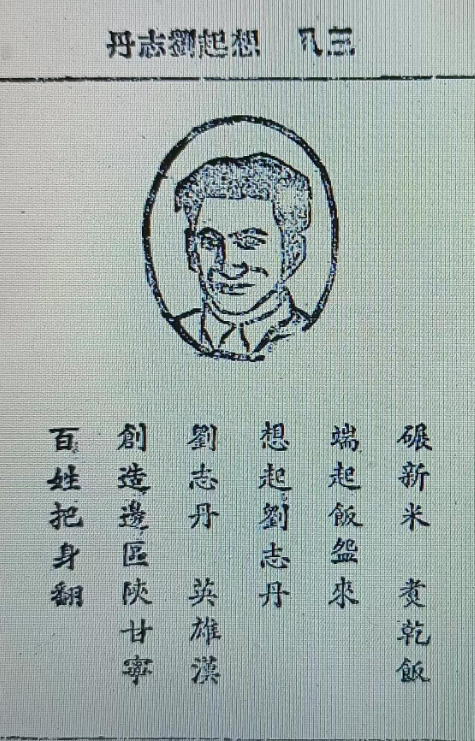 三八　想起劉志丹
碾新米　煑乾飯
端起飯盌來
想起劉志丹
劉志丹　英雄漢
創造邊區陝甘寧
百姓把身翻